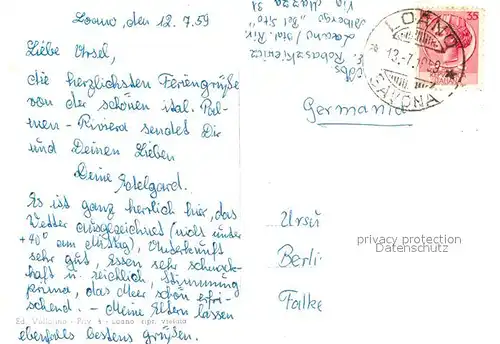 Loano, den 12.7.59
Liebe Ursel,
die herzlichsten Feriengrüße
von der schönen ital. Pal-
men-Riviera sendet Dir
und Deinen Lieben
Deine Edelgard.
Es ist ganz herrlich hier, das
Wetter ausgezeichnet (nicht unter
+40° am Mittag), Unterkunft
sehr gut, Essen sehr schmack-
haft u. reichlich, Stimmung
prima, das Meer schön erfri-
schend. - Meine Eltern lassen
ebenfalls bestens grüßen.
Ed. Vallarino - Loano
Abs.
E. Robaszkiewicz
Loano/Ital. Riv.
Albergo "Bel Sito"
Via
LOANO
13.-7.
SAVONA
35
Germania
Ursu
Berli
Falke
privacy protection
Datenschutz